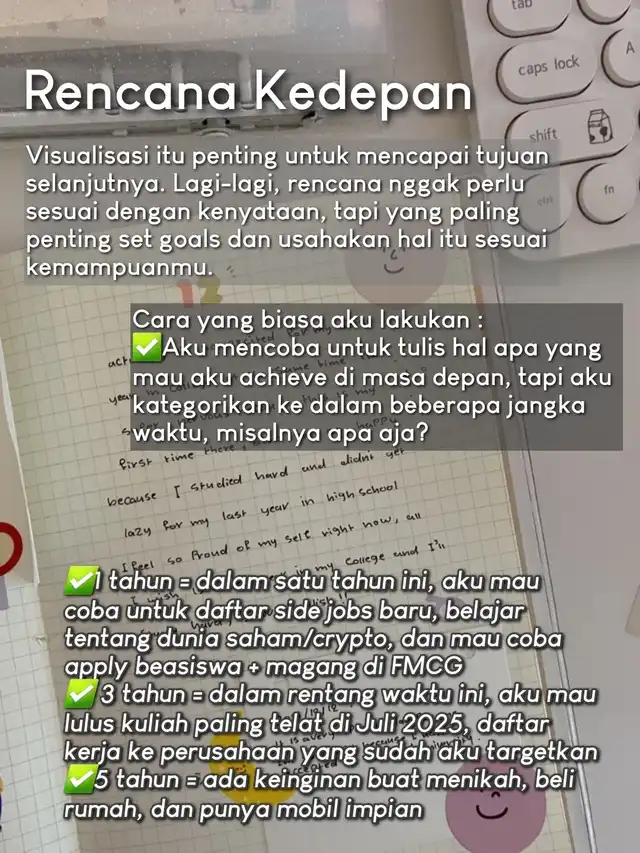 tab
caps lock
A
shift
ctrl
fn
Rencana Kedepan
Visualisasi itu penting untuk mencapai tujuan
selanjutnya. Lagi-lagi, rencana nggak perlu
sesuai dengan kenyataan, tapi yang paling
penting set goals dan usahakan hal itu sesuai
kemampuanmu.
12
Cara yang biasa aku lakukan :
✅Aku mencoba untuk tulis hal apa yang
mau aku achieve di masa depan, tapi aku
kategorikan ke dalam beberapa jangka
waktu, misalnya apa aja?
first time there,
because I studied hard and didn't get
lazy for my last year in high school
I feel so proud of my self right now, all
my College and I'll
✅1 tahun = dalam satu tahun ini, aku mau
coba untuk daftar side jobs baru, belajar
tentang dunia saham/crypto, dan mau coba
apply beasiswa + magang di FMCG
✅ 3 tahun = dalam rentang waktu ini, aku mau
lulus kuliah paling telat di Juli 2025, daftar
kerja ke perusahaan yang sudah aku targetkan
✅5 tahun = ada keinginan buat menikah, beli
rumah, dan punya mobil impian